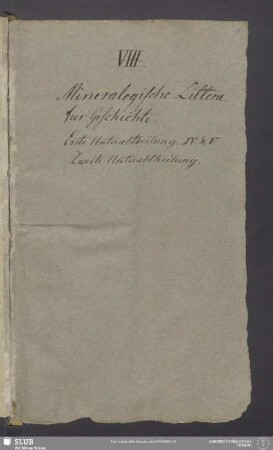 VIII.
Mineralogische Littera
tur Geschichte.
Erste Unterabtheilung. IV & V
Zweite Unterabtheilung.
SLUB
Wir führen Wissen.